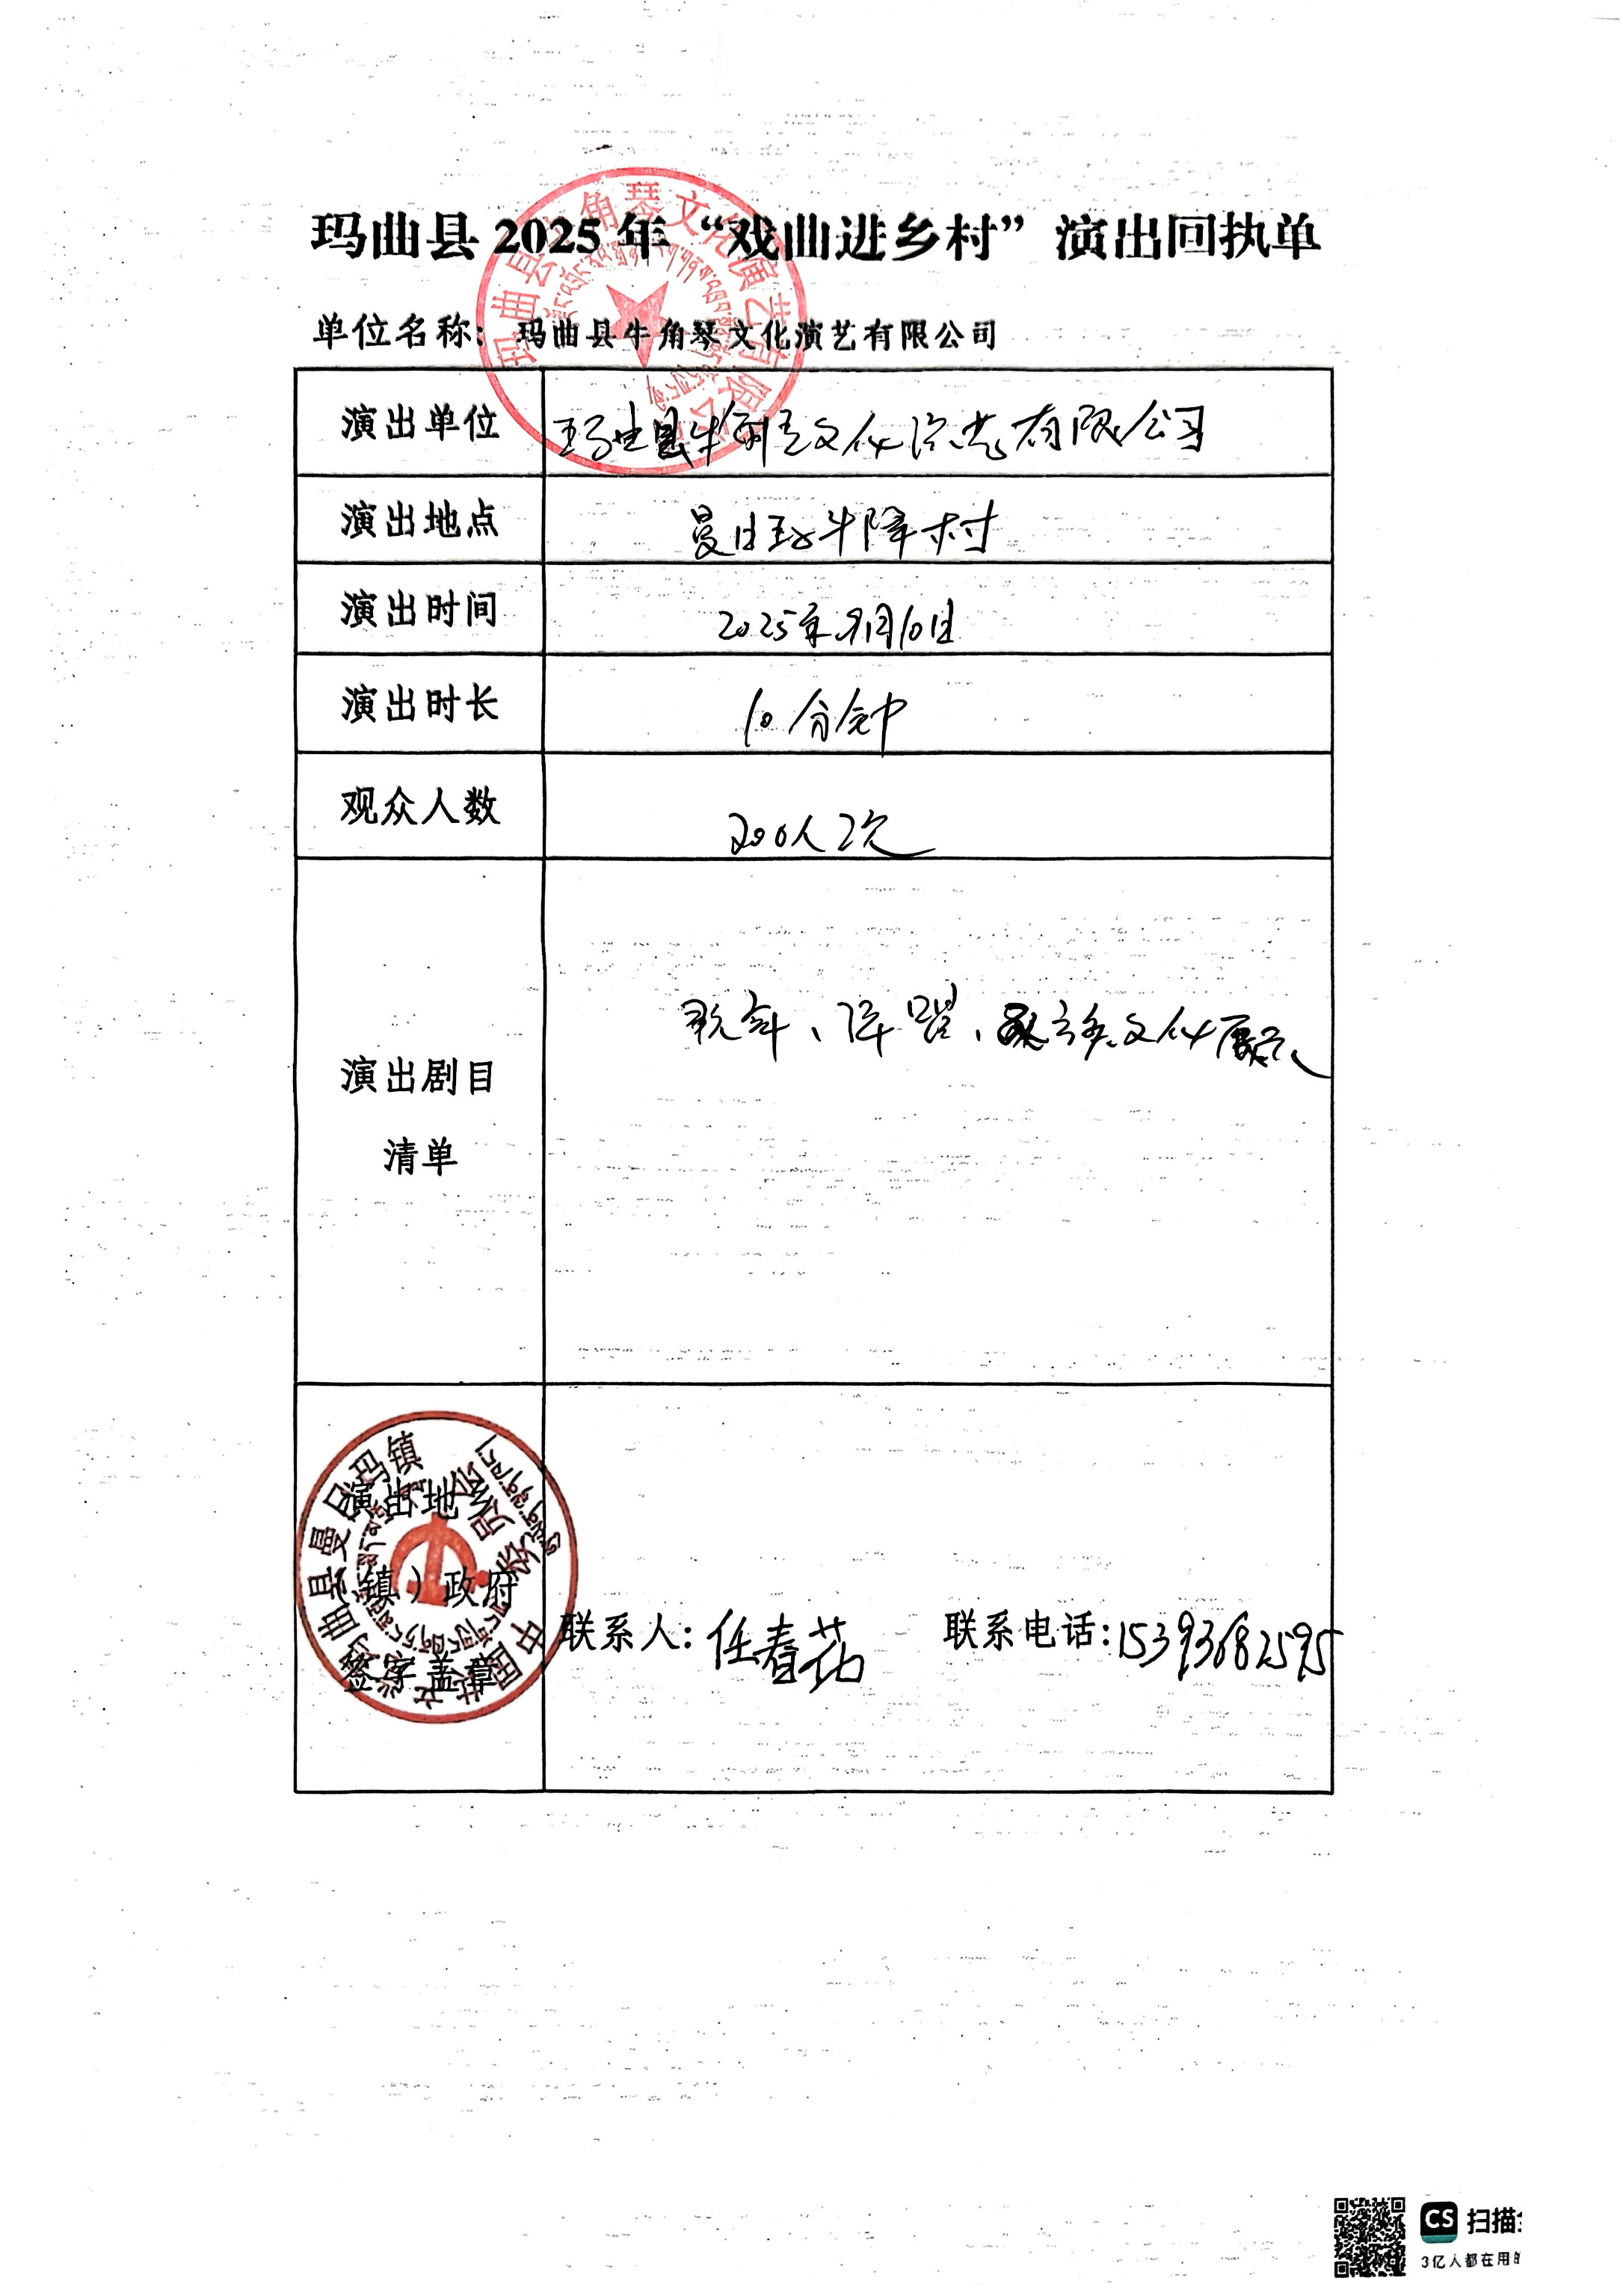 玛曲县 2025 年“戏曲进乡村”演出回执单
单位名称: 玛曲县牛角琴文化演艺有限公司
演出单位 玛曲县牛角琴文化演艺有限公司
演出地点 曼日玛 村
演出时间 2025年9月10日
演出时长 10分钟
观众人数 200人次
演出剧目 文化展示
清单
演出地乡
（镇）政府
签字盖章
联系人: 任春花 联系电话: 15393682595
玛曲县牛角琴文化演艺有限公司
中国共产党玛曲县曼日玛镇委员会
CS 扫描
3亿人都在用的